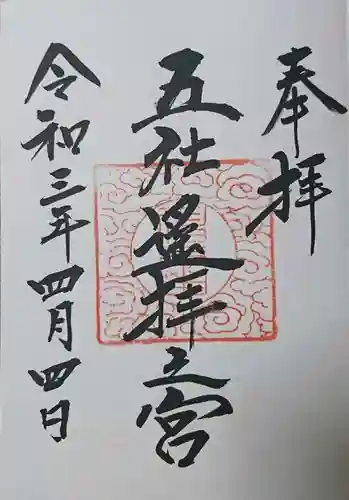 奉拝
五社遙拝之宮
令和三年四月四日